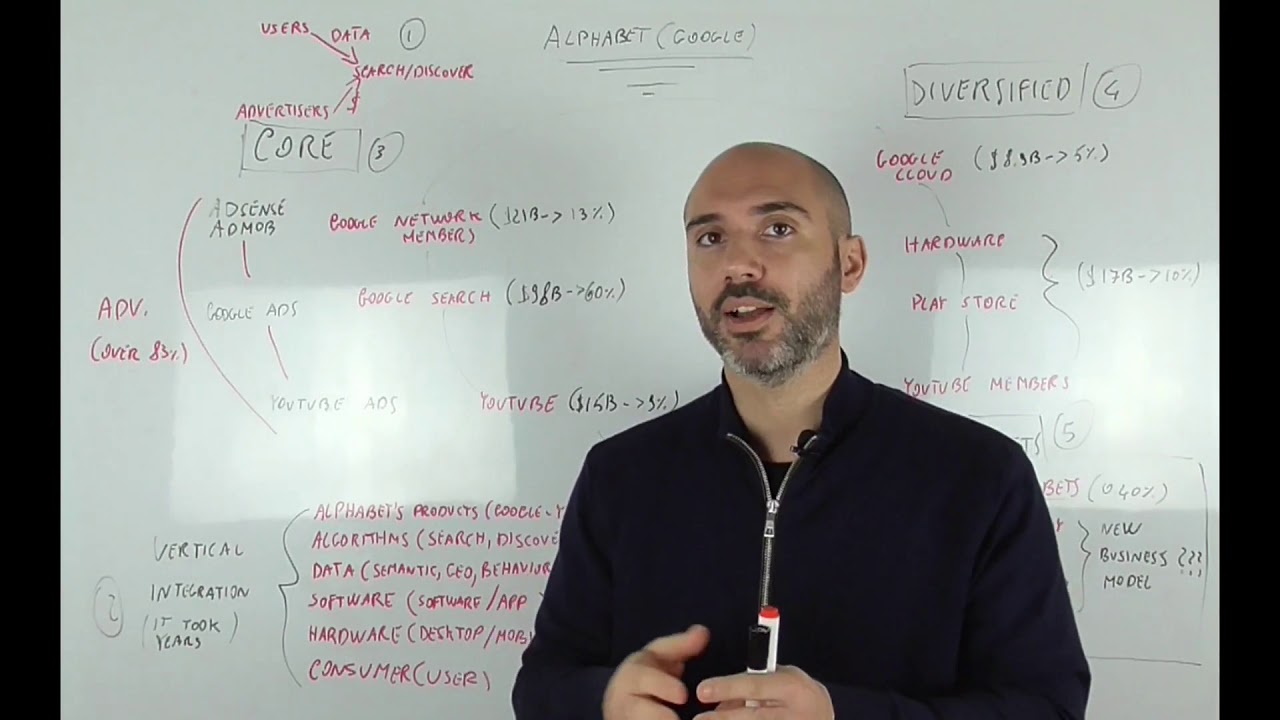 ALPHABET (GOOGLE)
USERS
DATA
1
SEARCH/DISCOVER
ADVERTISERS
$
CORE
3
ADSENSE
ADMOB
GOOGLE NETWORK ($21B-> 13%)
MEMBERS
GOOGLE ADS
GOOGLE SEARCH ($98B->60%)
ADV.
(OVER 83%)
YOUTUBE ADS
YOUTUBE ($15B->9%)
DIVERSIFIED
4
GOOGLE
CLOUD
($8.9B->5%)
HARDWARE
PLAY STORE
($17B->10%)
YOUTUBE MEMBERS
5
BETS (0.40%)
NEW
BUSINESS ???
MODEL
2
VERTICAL
INTEGRATION
(IT TOOK
YEARS)
ALPHABET'S PRODUCTS (GOOGLE-
ALGORITHMS (SEARCH, DISCOVE
DATA (SEMANTIC, GEO, BEHAVIOR
SOFTWARE (SOFTWARE/APP
HARDWARE (DESKTOP/MOBI
CONSUMER (USER)